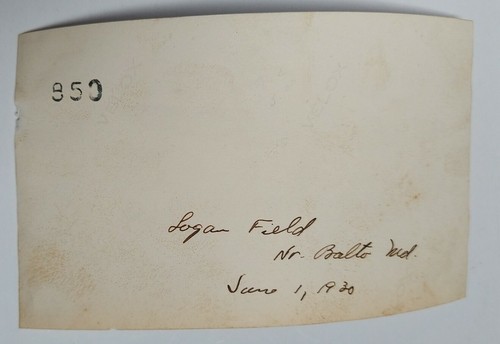 850
Logan Field
Nr. Balto Md.
June 1, 1930